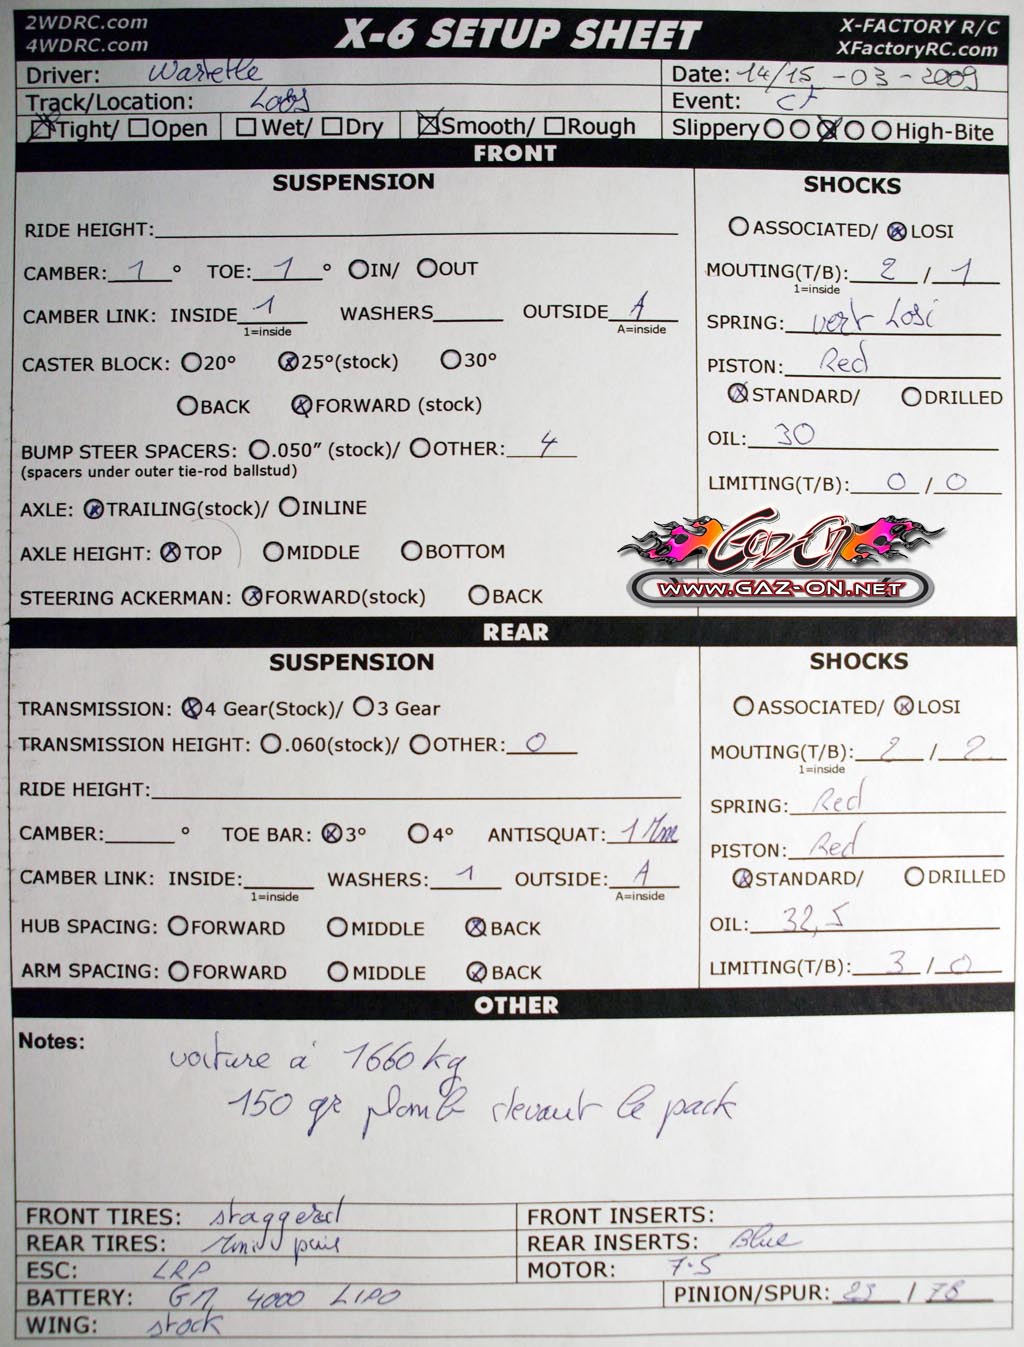 2WDRC.com
4WDRC.com
X-6 SETUP SHEET
X-FACTORY R/C
XFactoryRC.com
Driver: Wartelle
Date: 14/15 -03 -2009
Track/Location:
Event: CF
Tight/ Open
Wet/ Dry
Smooth/ Rough
Slippery High-Bite
FRONT
SUSPENSION
RIDE HEIGHT:
CAMBER: 1 ° TOE: 1 ° IN/ OUT
CAMBER LINK: INSIDE 1 WASHERS OUTSIDE A
1=inside A=inside
CASTER BLOCK: 20° 25°(stock) 30°
BACK FORWARD (stock)
BUMP STEER SPACERS: .050" (stock)/ OTHER: 4
(spacers under outer tie-rod ballstud)
AXLE: TRAILING(stock)/ INLINE
AXLE HEIGHT: TOP MIDDLE BOTTOM
STEERING ACKERMAN: FORWARD(stock) BACK
SHOCKS
ASSOCIATED/ LOSI
MOUTING(T/B): 2 / 1
1=inside
SPRING: vert Losi
PISTON: Red
STANDARD/ DRILLED
OIL: 30
LIMITING(T/B): 0 / 0
Gaz-On
www.GAZ-ON.NET
REAR
SUSPENSION
TRANSMISSION: 4 Gear(Stock)/ 3 Gear
TRANSMISSION HEIGHT: .060(stock)/ OTHER: 0
RIDE HEIGHT:
CAMBER: ° TOE BAR: 3° 4° ANTISQUAT: 1 Mm
CAMBER LINK: INSIDE: WASHERS: 1 OUTSIDE: A
1=inside A=inside
HUB SPACING: FORWARD MIDDLE BACK
ARM SPACING: FORWARD MIDDLE BACK
SHOCKS
ASSOCIATED/ LOSI
MOUTING(T/B): 2 / 2
1=inside
SPRING: Red
PISTON: Red
STANDARD/ DRILLED
OIL: 32,5
LIMITING(T/B): 3 / 0
OTHER
Notes:
voiture à 1660 kg
150 gr plomb devant le pack
FRONT TIRES: staggered
FRONT INSERTS:
REAR TIRES: Mini pin
REAR INSERTS: Blue
ESC: LRP
MOTOR: 7.5
BATTERY: GM 4000 LIPO
PINION/SPUR: 23 / 78
WING: stock